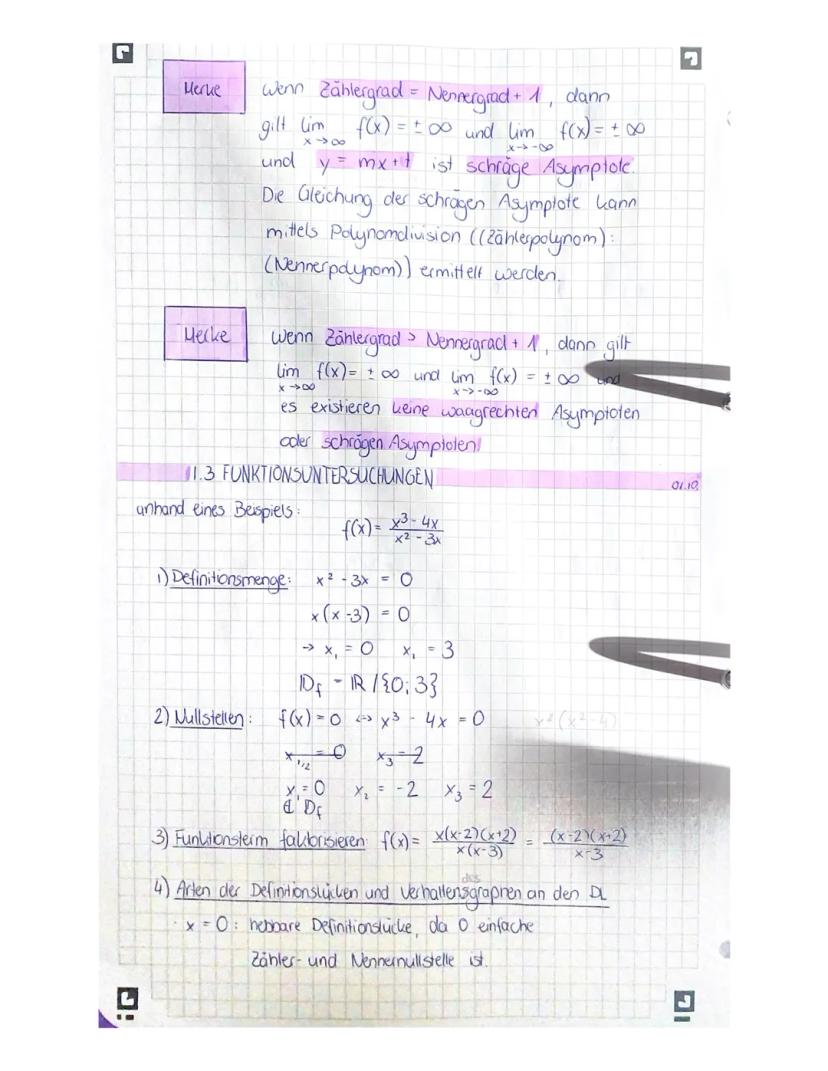 Merke
Wenn Zählergrad = Nennergrad + 1, dann
gilt lim f(x) = ± ∞ und lim f(x) = ± ∞
x → ∞ x → -∞
und y = mx + t ist schräge Asymptote.
Die Gleichung der schrägen Asymptote kann
mittels Polynomdivision ((Zählerpolynom):
(Nennerpolynom)) ermittelt werden.
Merke
Wenn Zählergrad > Nennergrad + 1, dann gilt
lim f(x) = ± ∞ und lim f(x) = ± ∞ und
x → ∞ x → -∞
es existieren keine waagrechten Asymptoten
oder schrägen Asymptoten!
1.3 FUNKTIONSUNTERSUCHUNGEN 01.10.
anhand eines Beispiels:
f(x) = x³ - 4x / x² - 3x
1) Definitionsmenge: x² - 3x = 0
x(x - 3) = 0
→ x₁ = 0 x₁ = 3
Df = ℝ / {0; 3}
2) Nullstellen: f(x) = 0 ↔ x³ - 4x = 0 x²(x² - 4)
x₁,₂ = 0 x₃ = 2
x₁ = 0 x₂ = -2 x₃ = 2
∉ Df
3) Funktionsterm faktorisieren: f(x) = x(x-2)(x+2) / x(x-3) = (x-2)(x+2) / x-3
des
4) Arten der Definitionslücken und Verhaltensgraphen an den DL
· x = 0: hebbare Definitionslücke, da 0 einfache
Zähler- und Nennernullstelle ist.